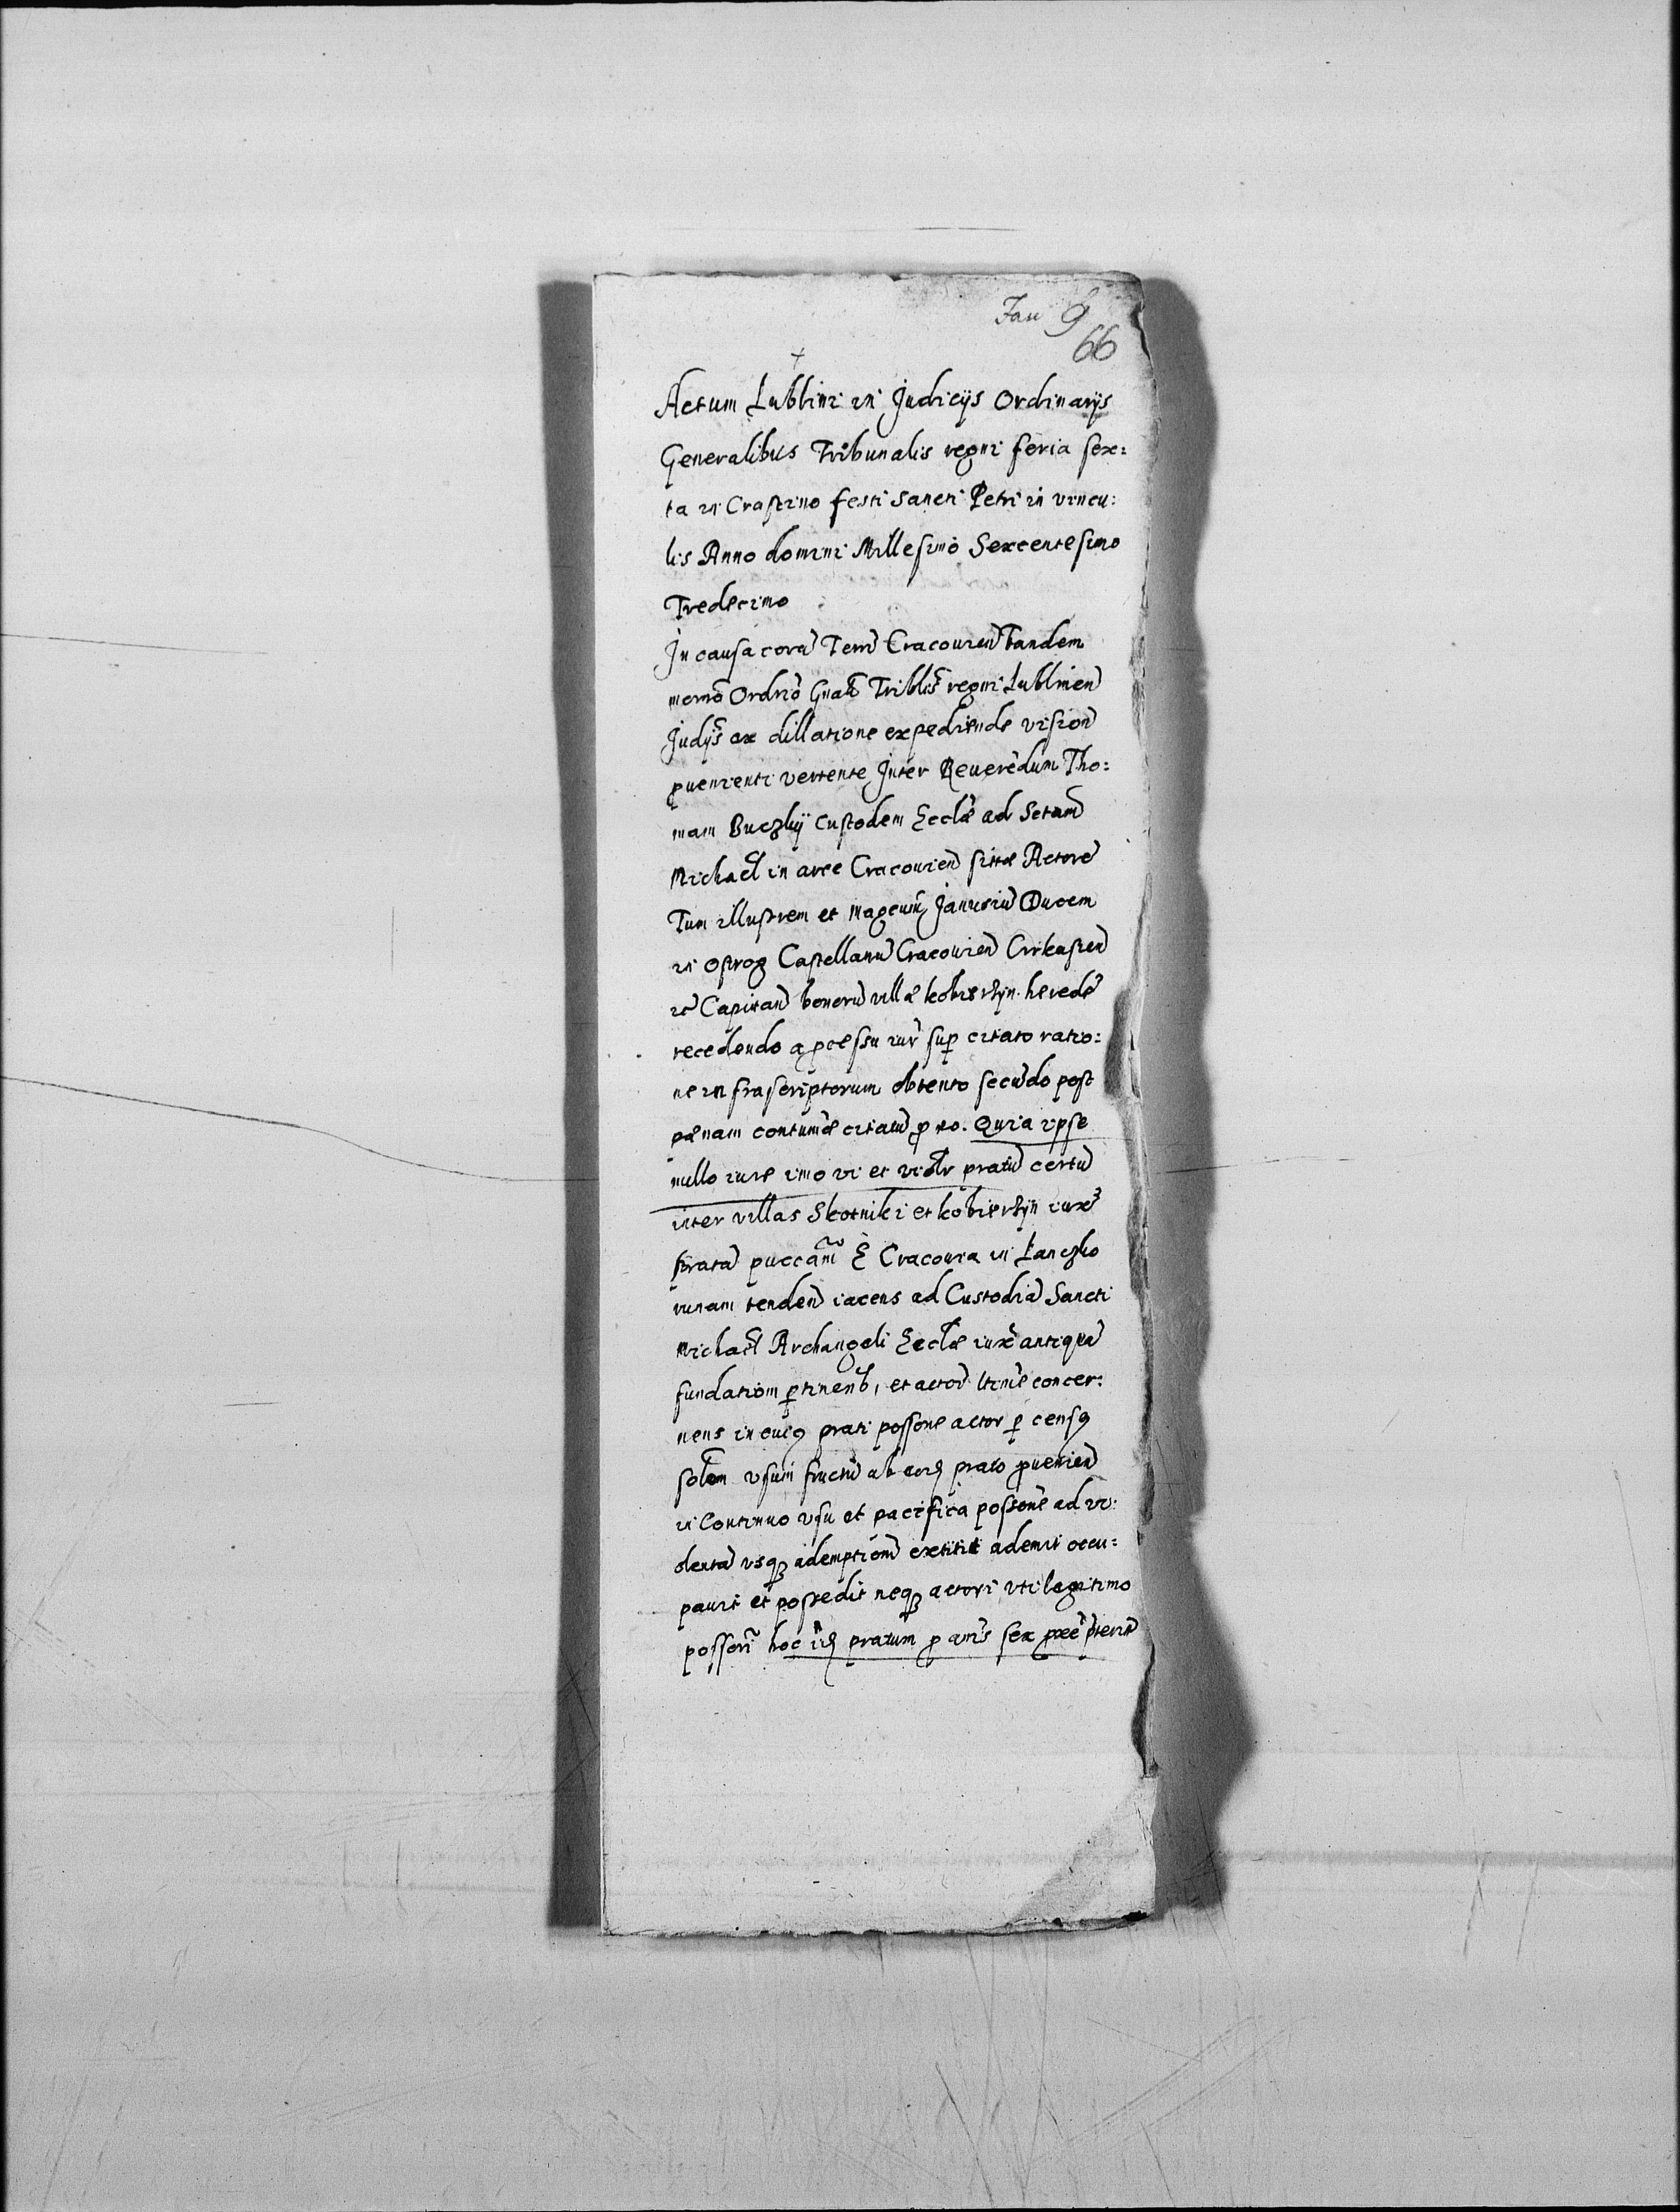 Jan 9
66
+
Actum Lublini in Judicijs Ordinarijs
Generalibus Tribunalis regni feria sex:
ta in Crastino festi Sancti Petri in vincu:
lis Anno domini Millesimo Sexcentesimo
Tredecimo
In causa corã Terrẽ Cracouieñ tandem
Ordrio Gnali Triblis regni Lublineñ
Judijs ex dillatione expediende visioñ
puenienti vertente Inter Reuerẽdum Tho:
mam Buczkij Custodem Ecclæ ad Sctum
Michael in arce Cracouieñ sittæ Actorẽ
Tum illustrem et magcum Janusiũ Ducem
in Ostrog Castellanũ Cracouieñ Cirkasieñ
zc Capitaũ bonorũ villæ kobierzyn heredẽ
recedendo a pcessu iur sup citato ratio:
ne infrascriptorum obtento secũdo post
pænam contumæ citatũ p eo. Quia ipse
nullo iure imo vi et viõlr pratũ certũ
inter villas Skotniki et kobierzijn iuxẽ
stratã puccam E Cracouia in Lanczko
runam tendeñ iacens ad Custodiã Sancti
Michael Archangeli Ecclæ iuxẽ antiquã
fundatiom ptineñ, et actor ltime concer:
nens in cuius prati possone actor p censũ
solem vsum fructũ ab eodẽ prato pueñieñ
in Continuo vsu et pacifica possonẽ ad vi:
olentã vsq ademptionẽ extitit ademit occu:
pauit et possedit neq actori vti legitimo
possori hoc idẽ pratum p annis sex pteritẽ